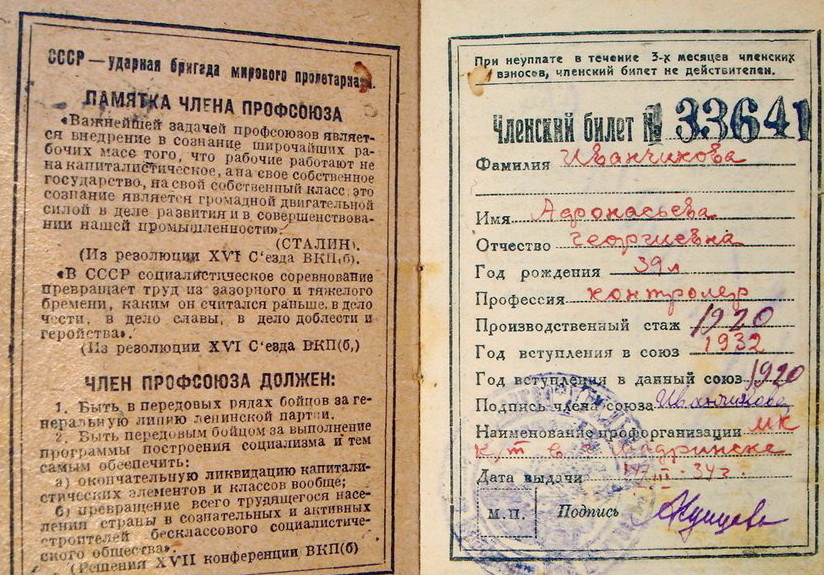 СССР — ударная бригада мирового пролетариа
ПАМЯТКА ЧЛЕНА ПРОФСОЮЗА
«Важнейшей задачей профсоюзов являет-
ся внедрение в сознание широчайших ра-
бочих масс того, что рабочие работают не
на капиталистическое, а на свое собственное
государство, на свой собственный класс; это
сознание является громадной двигательной
силой в деле развития и в совершенствова-
нии нашей промышленности».
(СТАЛИН).
(Из резолюции XVI С'езда ВКП(б).
«В СССР социалистическое соревнование
превращает труд из зазорного и тяжелого
бремени, каким он считался раньше, в дело
чести, в дело славы, в дело доблести и
геройства».
(Из резолюции XVI С'езда ВКП(б,)
ЧЛЕН ПРОФСОЮЗА ДОЛЖЕН:
1. Быть в передовых рядах бойцов за ге-
неральную линию ленинской партии.
2. Быть передовым бойцом за выполнение
программы построения социализма и тем
самым обеспечить:
а) окончательную ликвидацию капитали-
стических элементов и классов вообще;
б) превращение всего трудящегося насе-
ления страны в сознательных и активных
строителей бесклассового социалистиче-
ского общества».
(Решения XVII конференции ВКП(б)
При неуплате в течение 3-х месяцев членских
взносов, членский билет не действителен.
Членский билет № 33641
Фамилия Иванчикова
Имя Афронасьева
Отчество георгиевна
Год рождения 39 л
Профессия контролер
Производственный стаж 1920
Год вступления в союз 1932
Год вступления в данный союз 1920
Подпись члена союза Иванчикова
Наименование профорганизации МК
К,т в г Шадринске
Дата выдачи III 34 г.
М.П. Подпись